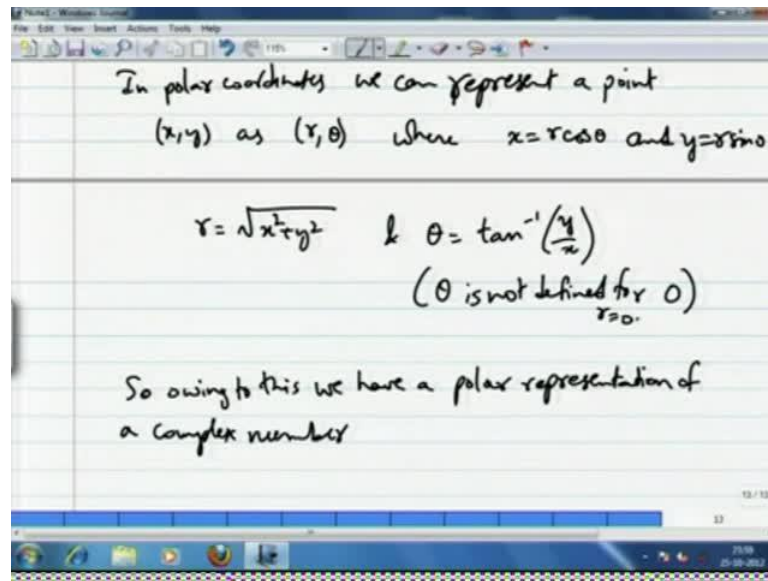 Note1 - Windows Journal
File Edit View Insert Actions Tools Help
In polar coordinates we can represent a point
(x,y) as (r,θ) where x=rcosθ and y=rsinθ
r=√x²+y² & θ= tan⁻¹(y/x)
(θ is not defined for 0)
r=0.
So owing to this we have a polar representation of
a complex number
13
25-10-2012